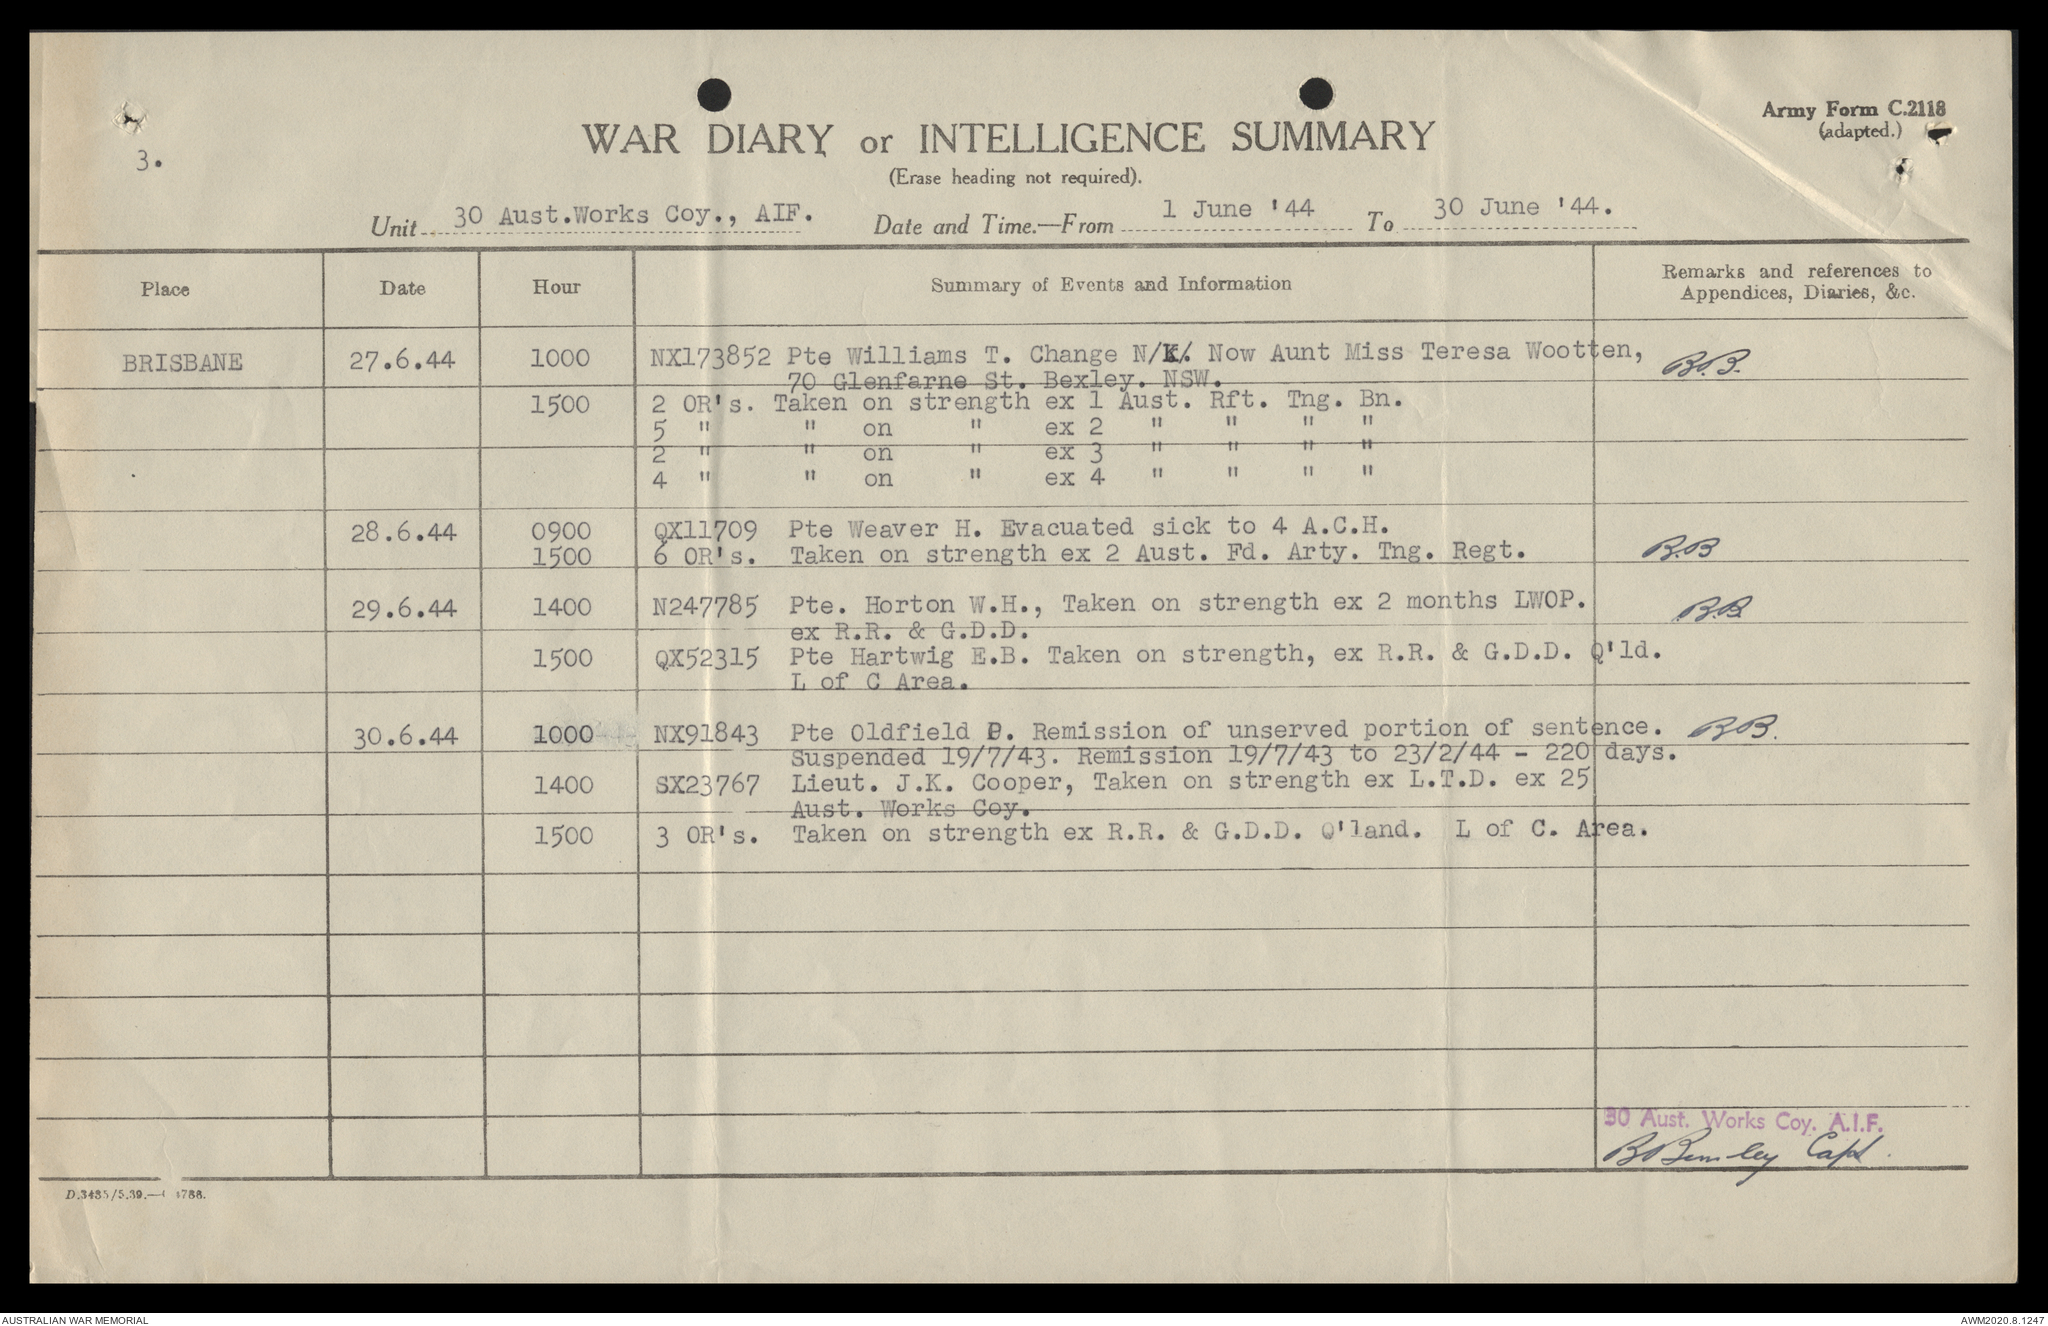 Army Form C.2118
(adapted.)
3.
WAR DIARY or INTELLIGENCE SUMMARY
(Erase heading not required).
Unit 30 Aust.Works Coy., AIF. Date and Time.—From 1 June '44 To 30 June '44.
Place Date Hour Summary of Events and Information Remarks and references to Appendices, Diaries, &c.
BRISBANE 27.6.44 1000 NX173852 Pte Williams T. Change N/K. Now Aunt Miss Teresa Wootten, B.B.
70 Glenfarne St. Bexley. NSW.
1500 2 OR's. Taken on strength ex 1 Aust. Rft. Tng. Bn.
5 " " on " ex 2 " " " "
2 " " on " ex 3 " " " "
4 " " on " ex 4 " " " "
28.6.44 0900 QX11709 Pte Weaver H. Evacuated sick to 4 A.C.H.
1500 6 OR's. Taken on strength ex 2 Aust. Fd. Arty. Tng. Regt. B.B
29.6.44 1400 N247785 Pte. Horton W.H., Taken on strength ex 2 months LWOP. B.B
ex R.R. & G.D.D.
1500 QX52315 Pte Hartwig E.B. Taken on strength, ex R.R. & G.D.D. Q'ld.
L of C Area.
30.6.44 1000 NX91843 Pte Oldfield P. Remission of unserved portion of sentence. BB.
Suspended 19/7/43. Remission 19/7/43 to 23/2/44 - 220 days.
1400 SX23767 Lieut. J.K. Cooper, Taken on strength ex L.T.D. ex 25
Aust. Works Coy.
1500 3 OR's. Taken on strength ex R.R. & G.D.D. Q'land. L of C. Area.
30 Aust. Works Coy. A.I.F.
Capt.
AUSTRALIAN WAR MEMORIAL
AWM2020.8.1247